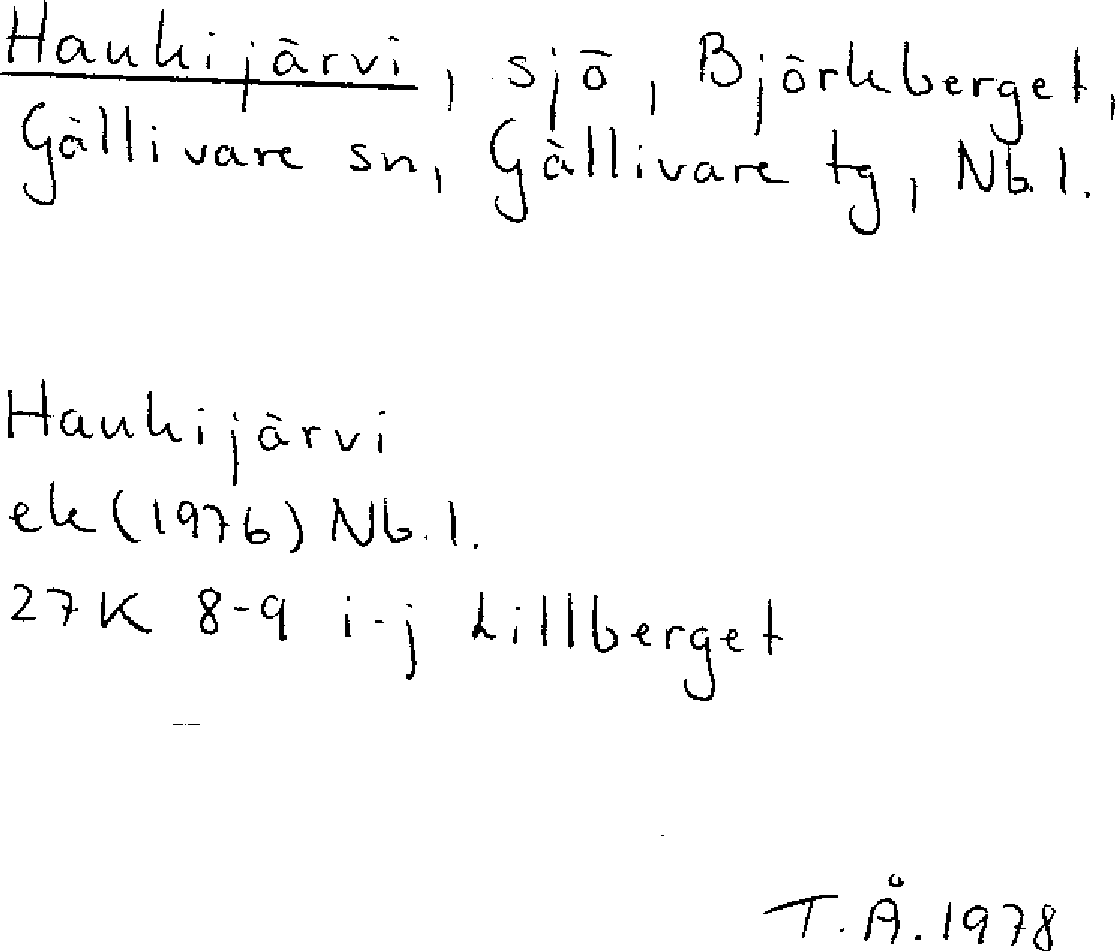 Haukijärvi, sjö, Björkberget,
Gällivare sn, Gällivare tg, Nb. l.
Haukijärvi
ek (1976) Nb. l.
27 K 8-9 i-j Lillberget
T. Å. 1978